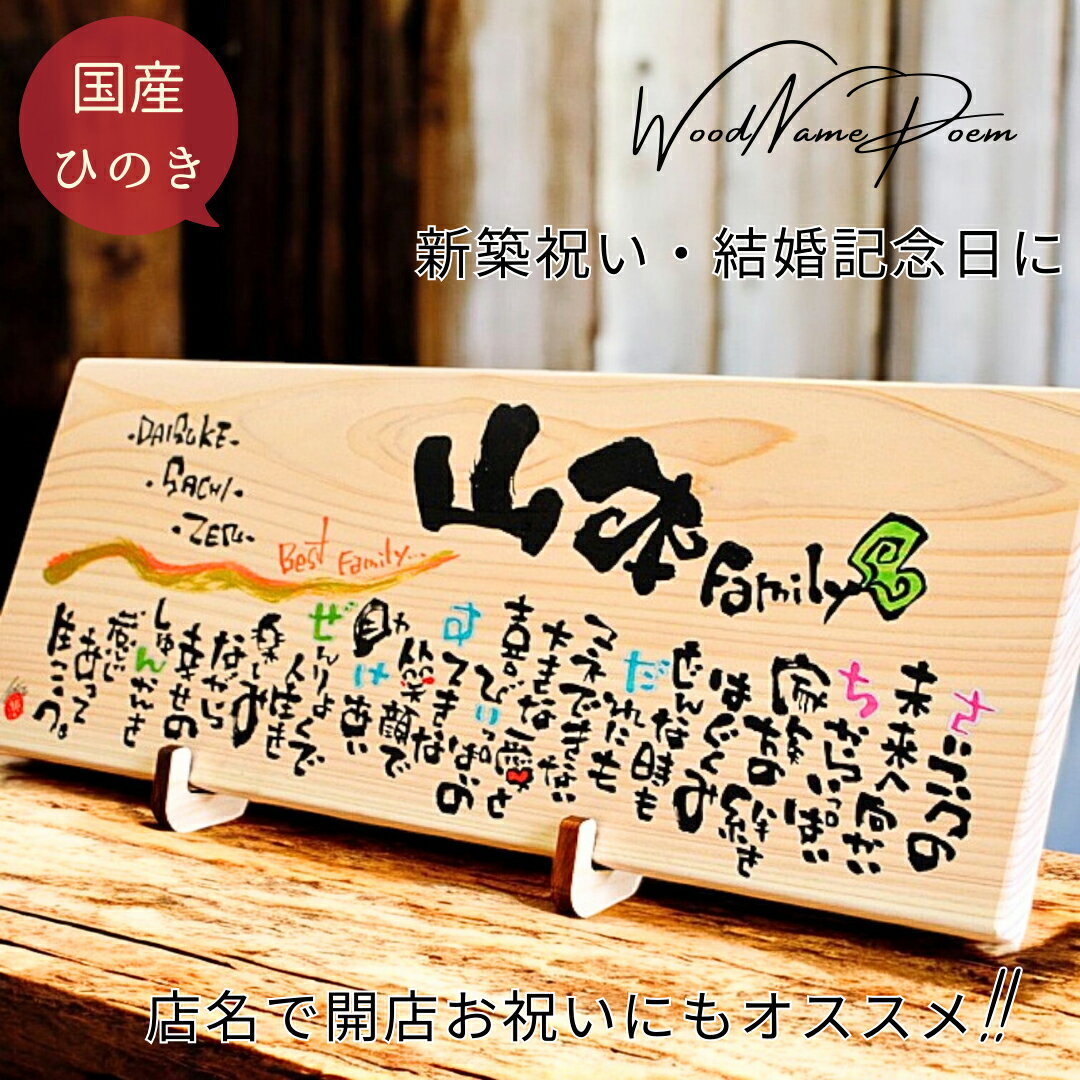 国産
ひのき
Wood Name Poem
新築祝い・結婚記念日に
・DAISUKE・
・SACHI・
・ZEN・
Best Family...
山本
Family
さいこうの
未来へ向かい
ちからいっぱい
家族の絆を
はぐくみ
どんな時も
だれにも
マネできない
大きな愛と
喜びいっぱいの
すてきな
笑顔で
助けあい
ぜんりょくで
人生を
楽しみ
ながら
幸せの
しゅんかんを
感じ
あって
生こう。
店名で開店お祝いにもオススメ!!